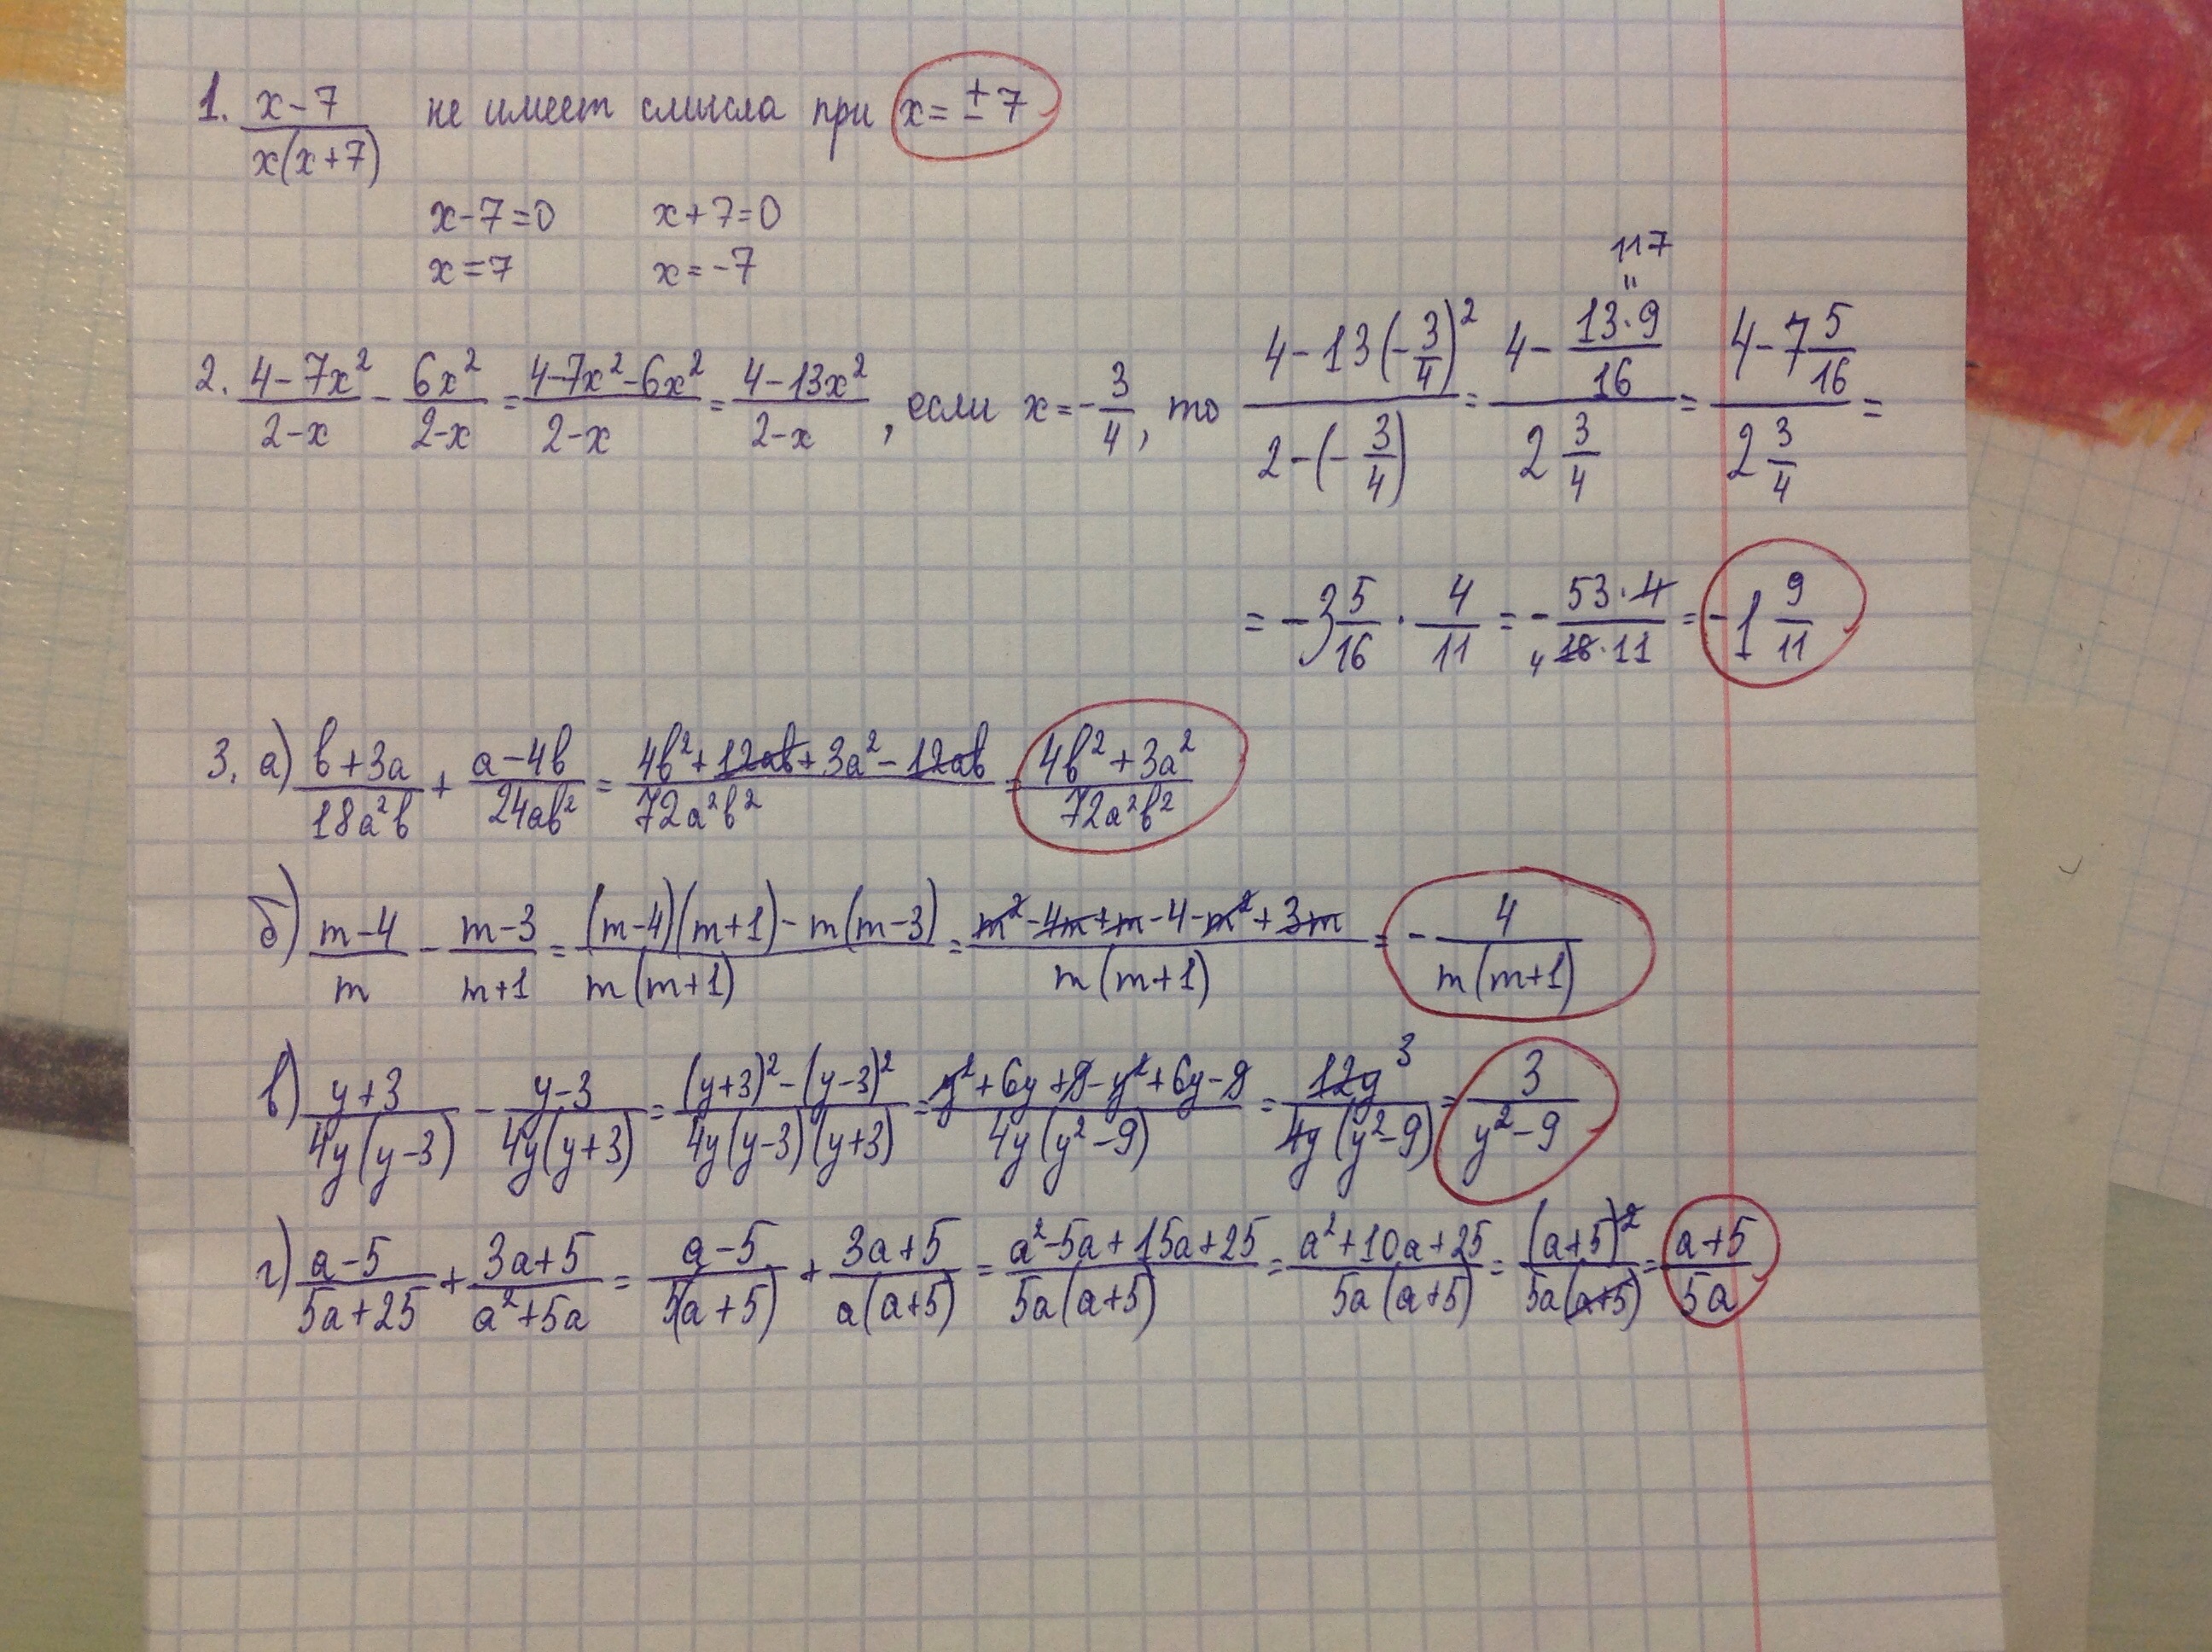 1. (x-7)/(x(x+7)) не имеет смысла при x = ±7
x-7=0 x+7=0
x=7 x=-7
117
"
2. (4-7x²)/(2-x) - 6x²/(2-x) = (4-7x²-6x²)/(2-x) = (4-13x²)/(2-x), если x=-3/4, то (4-13(-3/4)²)/(2-(-3/4)) = (4-13·9/16)/(2 3/4) = (4-7 5/16)/(2 3/4) =
= -3 5/16 · 4/11 = -(53·4)/(4 16·11) = -1 9/11
3. а) (b+3a)/(18a²b) + (a-4b)/(24ab²) = (4b²+12ab+3a²-12ab)/(72a²b²) = (4b²+3a²)/(72a²b²)
б) (m-4)/m - (m-3)/(m+1) = ((m-4)(m+1)-m(m-3))/(m(m+1)) = (m²-4m+m-4-m²+3m)/(m(m+1)) = -4/(m(m+1))
в) (y+3)/(4y(y-3)) - (y-3)/(4y(y+3)) = ((y+3)²-(y-3)²)/(4y(y-3)(y+3)) = (y²+6y+9-y²+6y-9)/(4y(y²-9)) = (12y 3)/(4y(y²-9)) = 3/(y²-9)
г) (a-5)/(5a+25) + (3a+5)/(a²+5a) = (a-5)/(5(a+5)) + (3a+5)/(a(a+5)) = (a²-5a+15a+25)/(5a(a+5)) = (a²+10a+25)/(5a(a+5)) = (a+5)²/(5a(a+5)) = (a+5)/(5a)